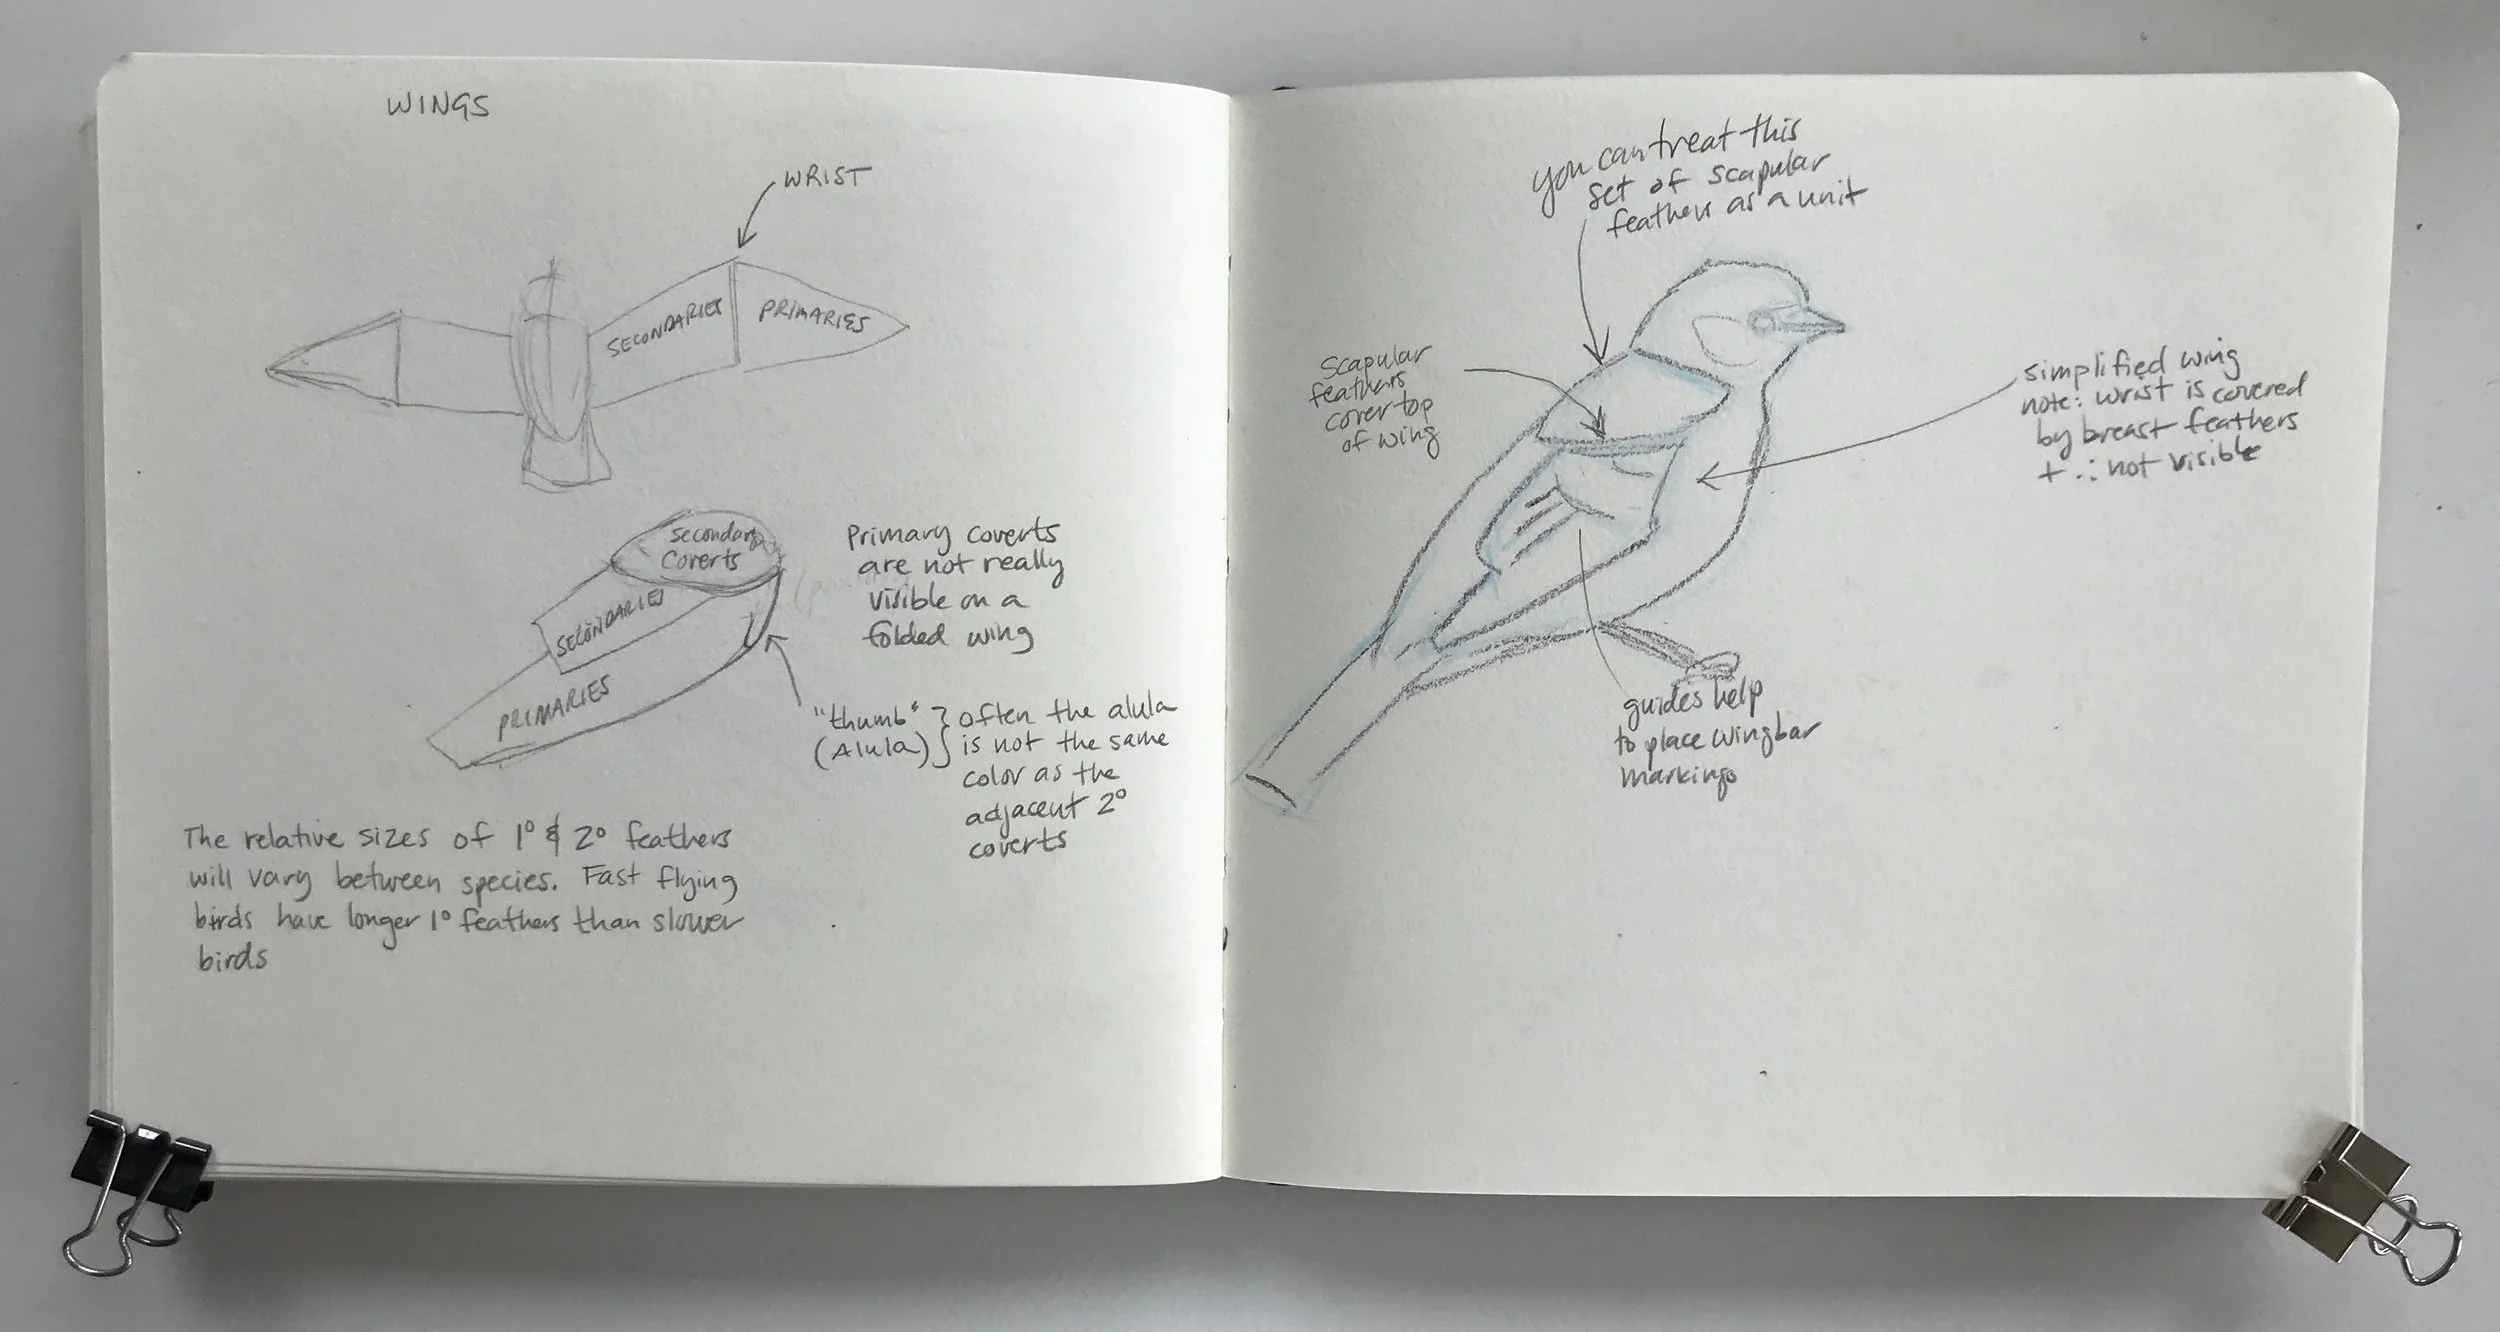 WINGS
WRIST
SECONDARIES
PRIMARIES
Secondary
Coverts
SECONDARIES
PRIMARIES
Primary coverts
are not really
visible on a
folded wing
"thumb" } often the alula
(Alula) } is not the same
color as the
adjacent 2°
coverts
The relative sizes of 1° & 2° feathers
will vary between species. Fast flying
birds have longer 1° feathers than slower
birds
you can treat this
set of scapular
feathers as a unit
Scapular
feathers
cover top
of wing
simplified wing
note: wrist is covered
by breast feathers
+ ∴ not visible
guides help
to place wingbar
markings